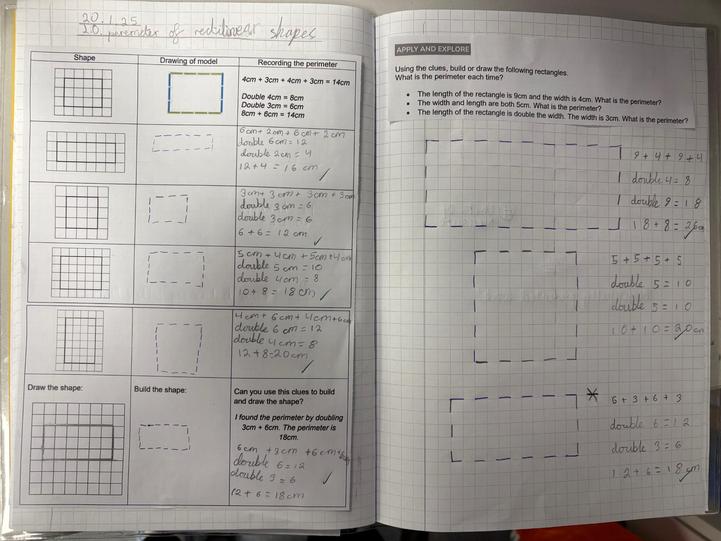 20.1.25
I.O. peremeter of rectilinear shapes
Shape
Drawing of model
Recording the perimeter
4cm + 3cm + 4cm + 3cm = 14cm
Double 4cm = 8cm
Double 3cm = 6cm
8cm + 6cm = 14cm
6cm + 2cm + 6cm + 2cm
double 6cm = 12
double 2cm = 4
12 + 4 = 16 cm
3cm + 3cm + 3cm + 3cm
double 3cm = 6
double 3cm = 6
6 + 6 = 12 cm
5cm + 4cm + 5cm + 4cm
double 5cm = 10
double 4cm = 8
10 + 8 = 18cm
4cm + 6cm + 4cm + 6cm
double 6cm = 12
double 4cm = 8
12 + 8 = 20cm
Draw the shape:
Build the shape:
Can you use this clues to build
and draw the shape?
I found the perimeter by doubling
3cm + 6cm. The perimeter is
18cm.
6cm + 3cm + 6cm + 3cm
double 6 = 12
double 3 = 6
12 + 6 = 18cm
APPLY AND EXPLORE
Using the clues, build or draw the following rectangles.
What is the perimeter each time?
• The length of the rectangle is 9cm and the width is 4cm. What is the perimeter?
• The width and length are both 5cm. What is the perimeter?
• The length of the rectangle is double the width. The width is 3cm. What is the perimeter?
9 + 4 + 9 + 4
double 4 = 8
double 9 = 18
18 + 8 = 26cm
5 + 5 + 5 + 5
double 5 = 10
double 5 = 10
10 + 10 = 20cm
6 + 3 + 6 + 3
double 6 = 12
double 3 = 6
12 + 6 = 18cm